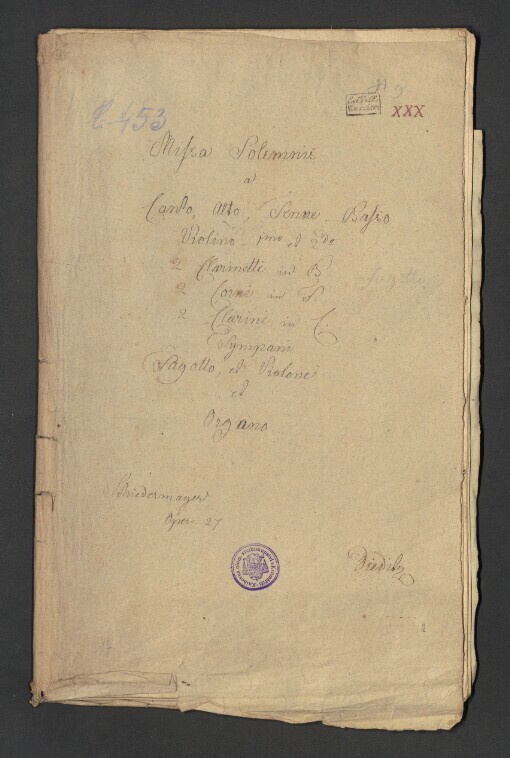 XXX
C-453
Missa Solemnis
a
Canto, Alto, Tenore Basso
Violino 1mo et 2do
2 Clarinetti in B
2 Corni in F
2 Clarini in C.
Tympani
Fagotto, et Violone
et
Organo
Schiedermayer
Oper. 27